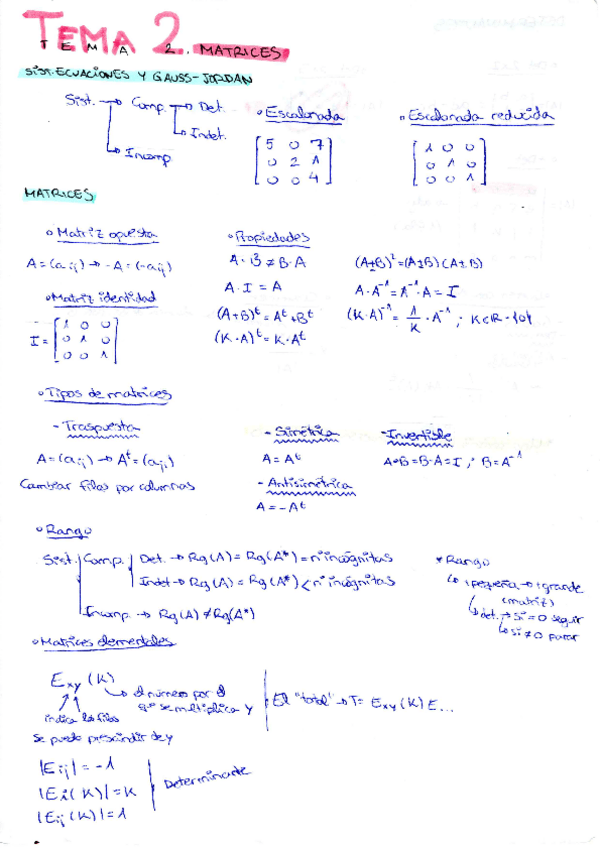 TEMA 2. MATRICES
TEMA 2.
SIST. ECUACIONES Y GAUSS-JORDAN
Sist. → Comp. → Det.
→ Indet.
→ Incomp
Escalonada
5 0 7
0 2 1
0 0 4
Escalonada reducida
1 0 0
0 1 0
0 0 1
MATRICES
Matriz opuesta
A = (aij) → -A = (-aij)
Matriz identidad
I = [1 0 0
0 1 0
0 0 1]
Propiedades
A · B ≠ B · A
A · I = A
(A+B)ᵗ = Aᵗ + Bᵗ
(K·A)ᵗ = K·Aᵗ
(A±B)² = (A±B)(A±B)
A·A⁻¹ = A⁻¹·A = I
(K·A)⁻¹ = 1/K · A⁻¹ ; K∈R - {0}
Tipos de matrices
- Traspuesta
A = (aij) → Aᵗ = (aji)
Cambiar filas por columnas
- Simétrica
A = Aᵗ
- Antisimétrica
A = -Aᵗ
- Invertible
A·B = B·A = I ; B = A⁻¹
Rango
Sist. Comp. Det. → Rg(A) = Rg(A*) = nºincógnitas
Indet → Rg(A) = Rg(A*) < nºincógnitas
Incomp. → Rg(A) ≠ Rg(A*)
* Rango
↳ pequeña → grande
(matriz)
↳ det. → Si = 0 seguir
↳ Si ≠ 0 parar
Matrices elementales
Exy (K)
→ el número por el
que se multiplica y
indica las filas
se puede prescindir de y
El "total" → T = Exy (K) E...
|Eij| = -1
|Ei(K)| = K
|Eij(K)| = 1
Determinante